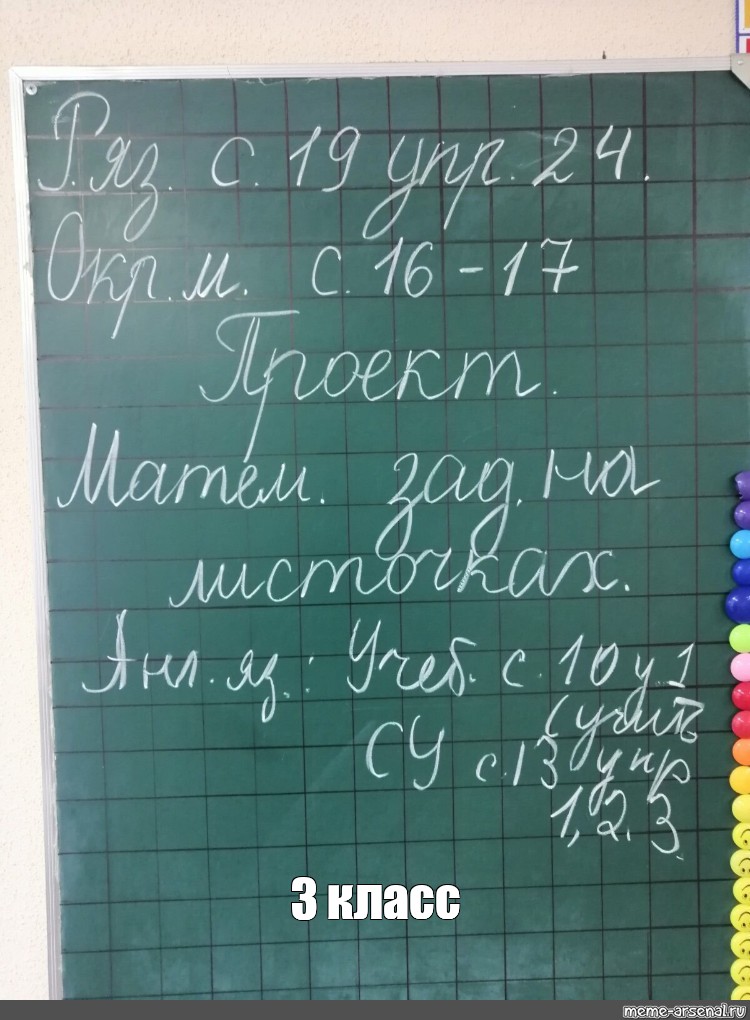 Р.яз. с. 19 упр. 24.
Окр.м. с. 16-17
Проект.
Матем. зад. на
листочках.
Англ.яз.: Учеб. с. 10 у 1
(учить
СУ с.13 упр
1, 2, 3
3 класс
meme-arsenal.ru